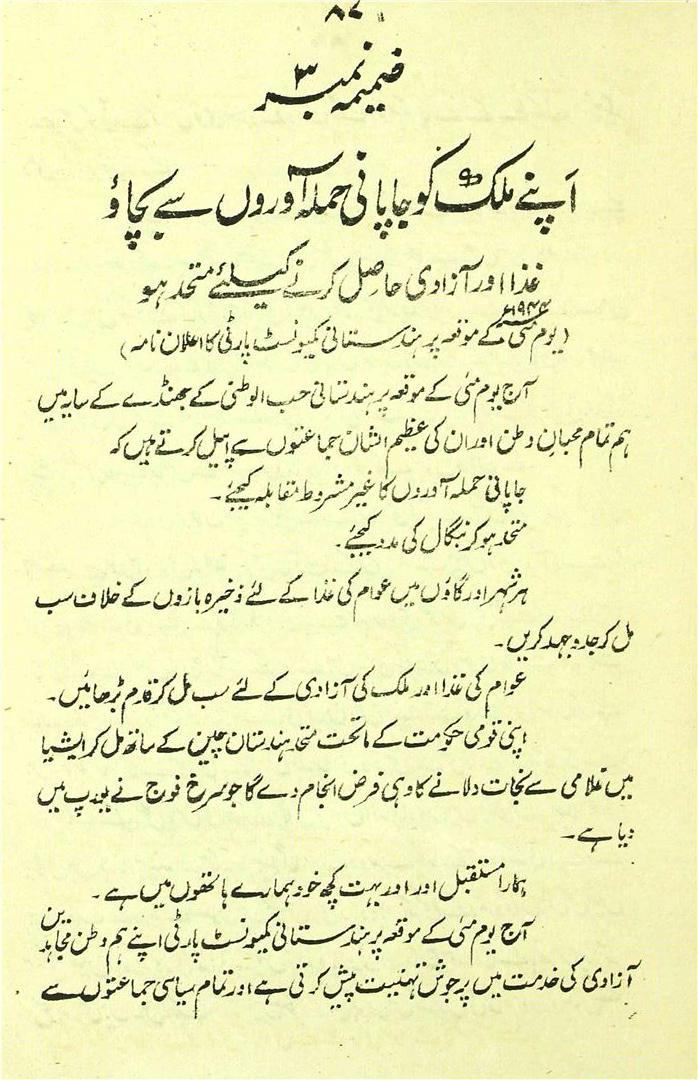 ۸۷
ضمیمہ نمبر ۳
اَپنے ملک کو جاپانی حملہ آوروں سے بچاؤ
غذا اور آزادی حاصل کرنے کیلئے متحد ہو
(یوم مئی ۱۹۴۴ء کے موقعہ پر ہندستانی کمیونسٹ پارٹی کا اعلان نامہ)
آج یوم مئی کے موقعہ پر ہندستانی حب الوطنی کے جھنڈے کے سایہ میں
ہم تمام محبانِ وطن اور ان کی عظیم الشان جماعتوں سے اپیل کرتے ہیں کہ
جاپانی حملہ آوروں کا غیر مشروط مقابلہ کیجئے۔
متحد ہو کر بنگال کی مدد کیجئے۔
ہر شہر اور گاؤں میں عوام کی غذا کے لئے ذخیرہ بازوں کے خلاف سب
مل کر جدوجہد کریں۔
عوام کی غذا اور ملک کی آزادی کے لئے سب مل کر قدم بڑھائیں۔
اپنی قومی حکومت کے ماتحت متحد ہندستان چین کے ساتھ مل کر ایشیا
میں غلامی سے نجات دلانے کا وہی فرض انجام دے گا جو سرخ فوج نے یورپ میں
دیا ہے۔
ہمارا مستقبل اور اور بہت کچھ خود ہمارے ہاتھوں میں ہے۔
آج یوم مئی کے موقعہ پر ہندستانی کمیونسٹ پارٹی اپنے ہم وطن مجاہدین
آزادی کی خدمت میں پرجوش تہنیت پیش کرتی ہے اور تمام سیاسی جماعتوں سے